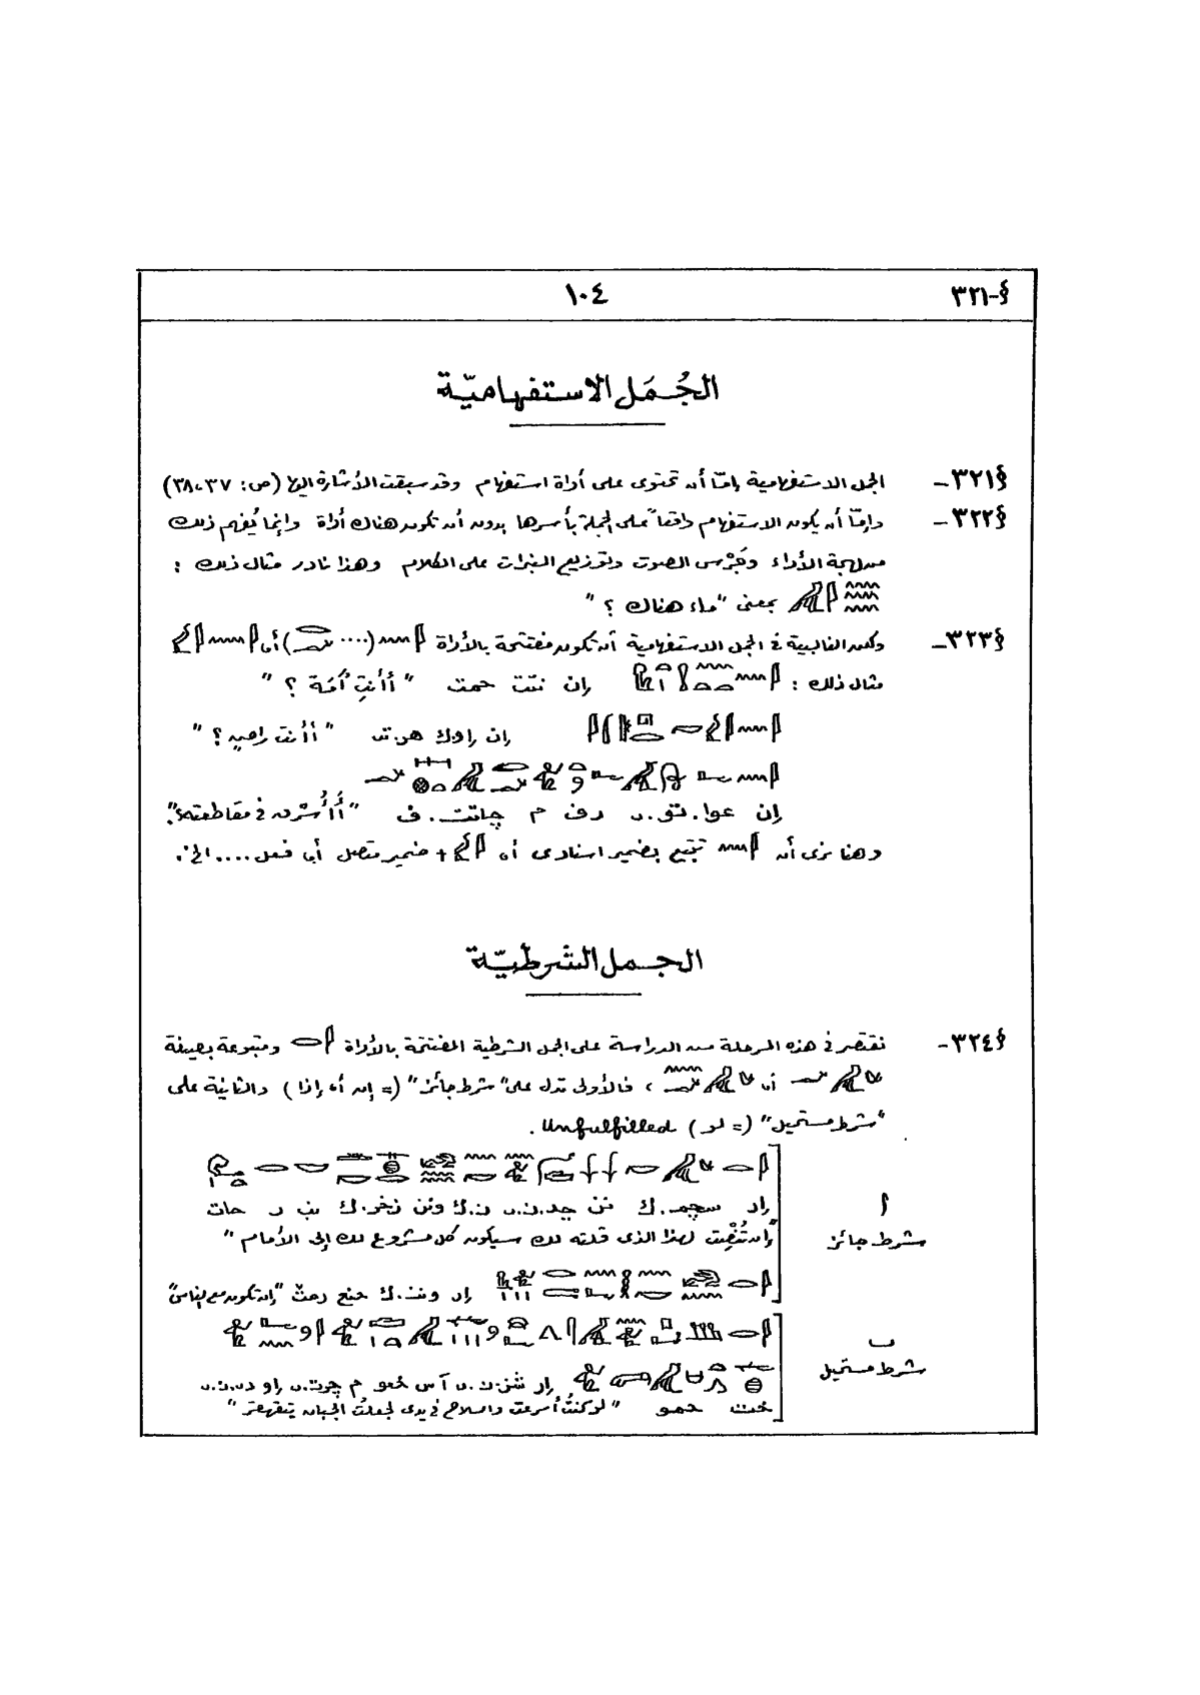 §-٣٢١ ١٠٤
الجُمَل الاستفهاميّة
§٣٢١- الجمل الاستفهامية إمّا أن تحتوى على أداة استفهام وقد سبقت الأشارة إليها (ص: ٣٧، ٣٨)
§٣٢٢- وإمّا أن يكون الاستفهام واقعاً على الجملة بأسرها بدون أن تكون هناك أداة وإنما يُفهم ذلك
من لهجة الأداء وجَرْس الصوت وتوزيع النبرات على الكلام وهذا نادر مثال ذلك :
بمعنى "ماء هناك ؟"
§٣٢٣- ولكن الغالبية فى الجمل الاستفهامية أن تكون مفتتحة بالأداة (....) أى
مثال ذلك : إن نتت حمت "أأنتِ أَمَة ؟"
إن إوك هر.تى "أأنت راضٍ؟"
إن عوا.تو.ى رف م چاتت.ف "أَأُسْرَق فى مقاطعته؟"
وهنا نرى أن تتبع بضمير اسنادى أو + ضمير متصل أى فعل .... الخ.
الجمل الشرطيّة
§٣٢٤- نقتصر فى هذه المرحلة من الدراسة على الجمل الشرطية المفتتحة بالأداة ومتبوعة بصيغة
أو ، فالأولى تدل على "شرط جائز" (= إن أو إذا) والثانية على
"شرط مستحيل" (= لو) Unfulfilled.
ا
شرط جائز
إر سچم.ك نن چد.ن.ى ن.ك ونن نخر.ك نب ر حات
"إن تُنْصِت لهذا الذى قلته لك سيكون كل مشروع لك إلى الأمام"
إر ونن.ك حنع رمث "إن تكون مع الناس"
ب
شرط مستحيل
إر شن.ن.ى آس خعو م چرت.ى إو دى.ن.ى
خت حمو "لو كنتُ أسرعت والسلاح فى يدى لجعلتُ الجبان يتقهقر"